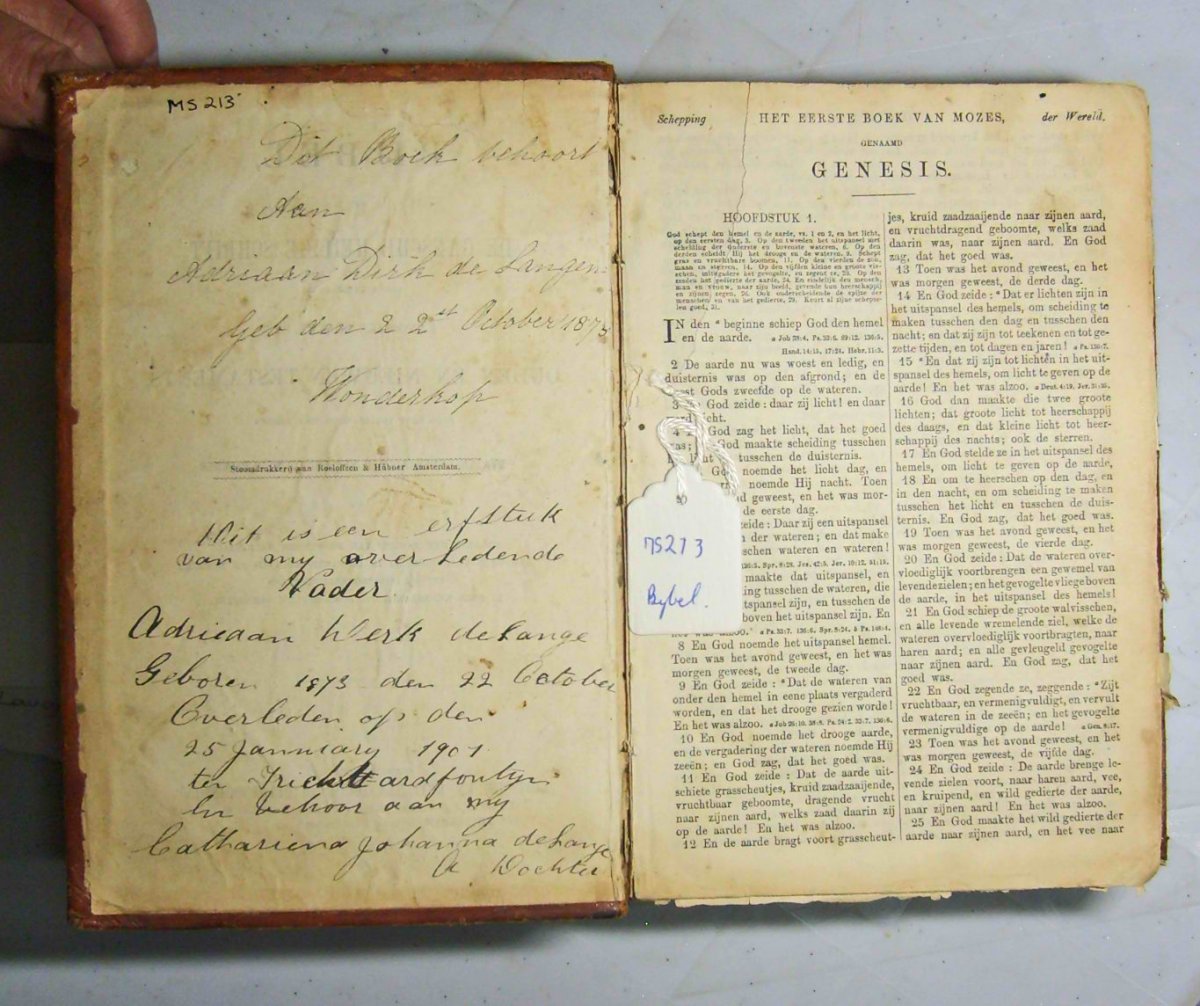 MS 213
Dit Boek behoort
Aan
Adriaan Dirk de Lange
Geb den 22st October 1873
Wonderkop
Stoomdrukkerij van Roeloffzen & Hübner Amsterdam.
Dit is een erfstuk
van my overledende
Vader
Adrieaan Derk deLange
Geboren 1873 den 22 October
Overleden op den
25 January 1901
te Trichardfontyn
En behoor aan my
Cathariena Johanna deLange
Dochter
MS213
Bybel.
Schepping HET EERSTE BOEK VAN MOZES, der Wereld.
GENAAMD
GENESIS.
HOOFDSTUK 1.
God schept den hemel en de aarde, vs. 1 en 2, en het licht,
op den eersten dag, 3. Op den tweeden het uitspansel met
scheiding der onderste en bovenste wateren, 6. Op den
derden scheidt Hij het drooge en de wateren, 9. Schept
gras en vruchtbare boomen, 11. Op den vierden de zon,
maan en sterren, 14. Op den vijfden kleine en groote
IN den a beginne schiep God den hemel
en de aarde. a Job 38:4. Ps. 33:6. 89:12. 136:5.
Hand. 14:15. 17:24. Hebr. 11:3.
2 De aarde nu was woest en ledig, en
duisternis was op den afgrond; en de
Geest Gods zweefde op de wateren.
3 En God zeide: daar zij licht! en daar
werd licht.
4 En God zag het licht, dat het goed
was; en God maakte scheiding tusschen
licht tusschen de duisternis.
God noemde het licht dag, en
noemde Hij nacht. Toen
geweest, en het was mor-
de eerste dag.
zeide: Daar zij een uitspansel
der wateren; en dat make
tusschen wateren en wateren!
maakte dat uitspansel, en
tusschen de wateren, die
uitspansel zijn, en tusschen de
boven het uitspansel zijn. En
het was alzoo.
8 En God noemde het uitspansel hemel.
Toen was het avond geweest, en het was
morgen geweest, de tweede dag.
9 En God zeide: a Dat de wateren van
onder den hemel in eene plaats vergaderd
worden, en dat het drooge gezien worde!
En het was alzoo. a Job 26:10. 38:8. Ps. 24:2. 33:7. 136:6.
10 En God noemde het drooge aarde,
en de vergadering der wateren noemde Hij
zeeën; en God zag, dat het goed was.
11 En God zeide: Dat de aarde uit-
schiete grasscheutjes, kruid zaadzaaijende,
vruchtbaar geboomte, dragende vrucht
naar zijnen aard, welks zaad daarin zij
op de aarde! En het was alzoo.
12 En de aarde bragt voort grasscheut-
jes, kruid zaadzaaijende naar zijnen aard,
en vruchtdragend geboomte, welks zaad
daarin was, naar zijnen aard. En God
zag, dat het goed was.
13 Toen was het avond geweest, en het
was morgen geweest, de derde dag.
14 En God zeide: a Dat er lichten zijn in
het uitspansel des hemels, om scheiding te
maken tusschen den dag en tusschen den
nacht; en dat zij zijn tot teekenen en tot ge-
zette tijden, en tot dagen en jaren! a Ps. 136:7.
15 a En dat zij zijn tot lichten in het uit-
spansel des hemels, om licht te geven op de
aarde! En het was alzoo. a Deut. 4:19. Jer. 31:35.
16 God dan maakte die twee groote
lichten; dat groote licht tot heerschappij
des daags, en dat kleine licht tot heer-
schappij des nachts; ook de sterren.
17 En God stelde ze in het uitspansel des
hemels, om licht te geven op de aarde,
18 En om te heerschen op den dag, en
in den nacht, en om scheiding te maken
tusschen het licht en tusschen de duis-
ternis. En God zag, dat het goed was.
19 Toen was het avond geweest, en het
was morgen geweest, de vierde dag.
20 En God zeide: Dat de wateren over-
vloediglijk voortbrengen een gewemel van
levende zielen; en het gevogelte vliege boven
de aarde, in het uitspansel des hemels!
21 En God schiep de groote walvisschen,
en alle levende wremelende ziel, welke de
wateren overvloediglijk voortbragten, naar
haren aard; en alle gevleugeld gevogelte
naar zijnen aard. En God zag, dat het
goed was.
22 En God zegende ze, zeggende: a Zijt
vruchtbaar, en vermenigvuldigt, en vervult
de wateren in de zeeën; en het gevogelte
vermenigvuldige op de aarde! a Gen. 8:17.
23 Toen was het avond geweest, en het
was morgen geweest, de vijfde dag.
24 En God zeide: De aarde brenge le-
vende zielen voort, naar haren aard, vee,
en kruipend, en wild gedierte der aarde,
naar zijnen aard! En het was alzoo.
25 En God maakte het wild gedierte der
aarde naar zijnen aard, en het vee naar